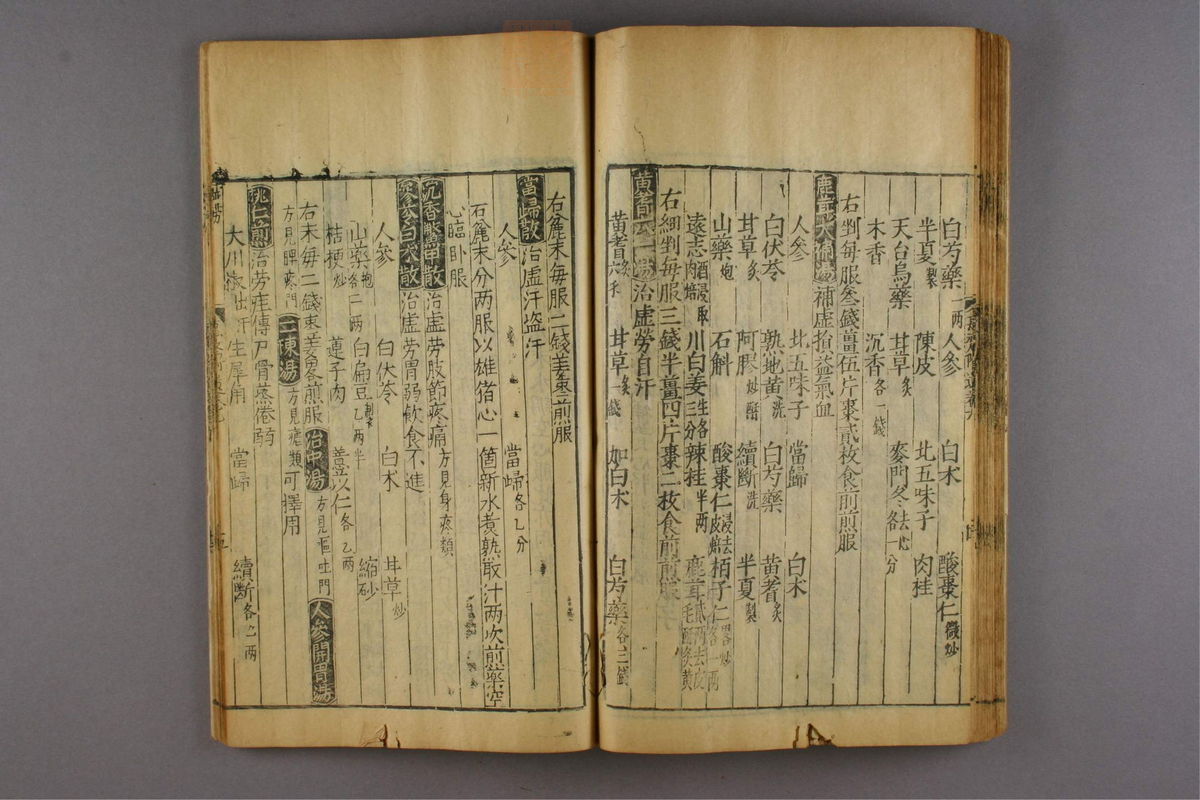 白芍藥一两 人參 白术 酸棗仁微炒
半夏製 陳皮 北五味子 肉桂
天台烏藥 甘草炙 麥門冬去心各一分
木香 沉香各一錢
右剉每服叁錢薑伍片棗貳枚食前煎服
鹿茸大補湯 補虛損益氣血
人參 北五味子 當歸 白术
白伏苓 熟地黄洗 白芍藥 黄耆炙
甘草炙 阿膠炒 續斷洗 半夏製
山藥炮 石斛 酸棗仁浸去皮焙 栢子仁略炒各一两
遠志酒浸取肉焙 川白姜生三分 辣桂半两 鹿茸
右細剉每服三錢半薑四片棗二枚食前煎服
黄耆 湯治虛勞自汗
黄耆六錢炙 甘草一錢炙 加白术 白芍藥各三錢
右麄末每服二錢姜棗煎服
當歸散 治虛汗盜汗
人參 當歸各乙分
右麄末分两服以雄猪心一箇新水煮熟取汁两次煎藥空
心臨卧服
沉香鱉甲散 治虛勞肢節疼痛方見身疼類
參苓白术散 治虛勞胃弱飲食不進
人參 白伏苓 白术 甘草炒
山藥炮各二两 白扁豆製乙两半 薏苡仁各乙两 縮砂
桔梗炒 蓮子肉
右末每二錢棗姜畧煎服 治中湯 方見嘔吐門 人參開胃湯
方見脾疼門 二陳湯 方見瘧類可擇用
桃仁煎 治劳疰傳尸骨蒸倦弱
大川椒出汗生犀用 當歸 續斷各二两